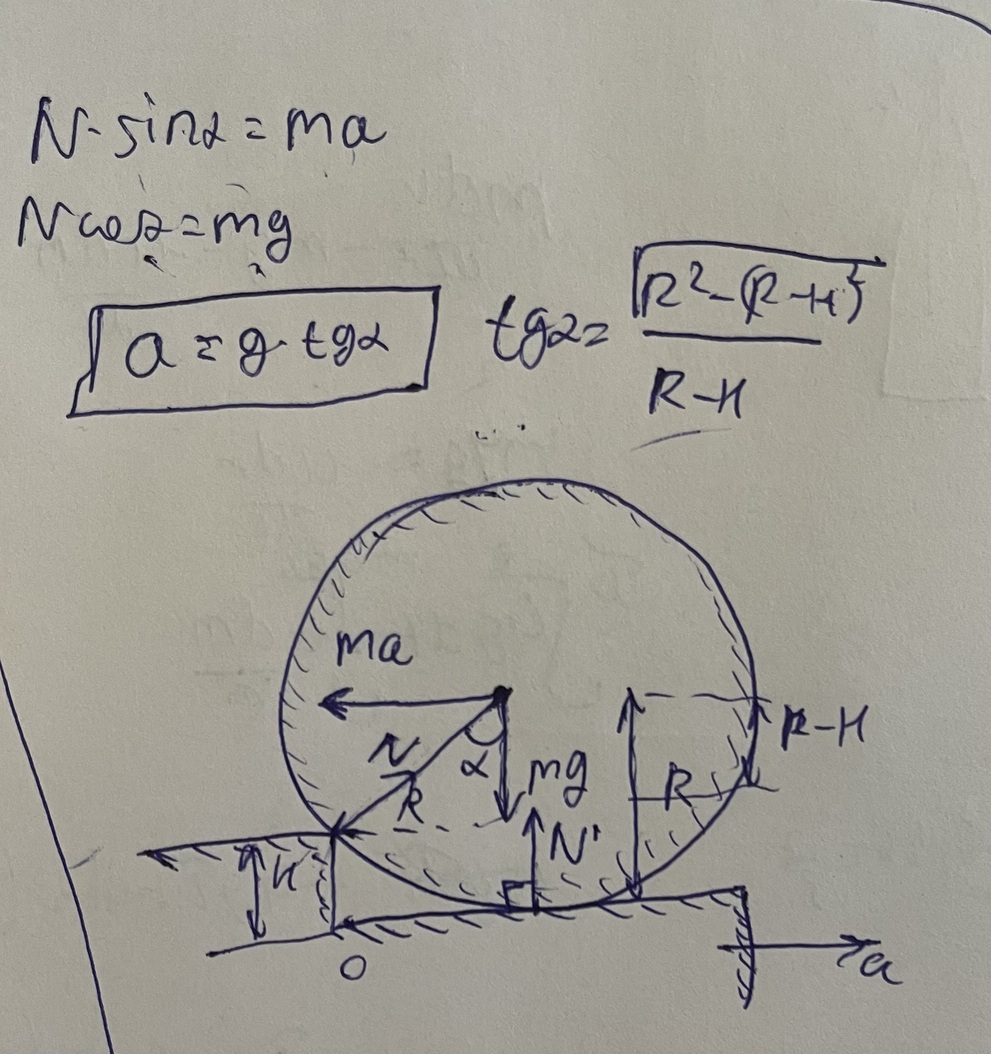 N·sinα = ma
Ncosα = mg
a = g·tgα
tgα = √(R²-(R-H)²) / (R-H)
ma
N
α
mg
R
R-H
R
N'
H
O
a